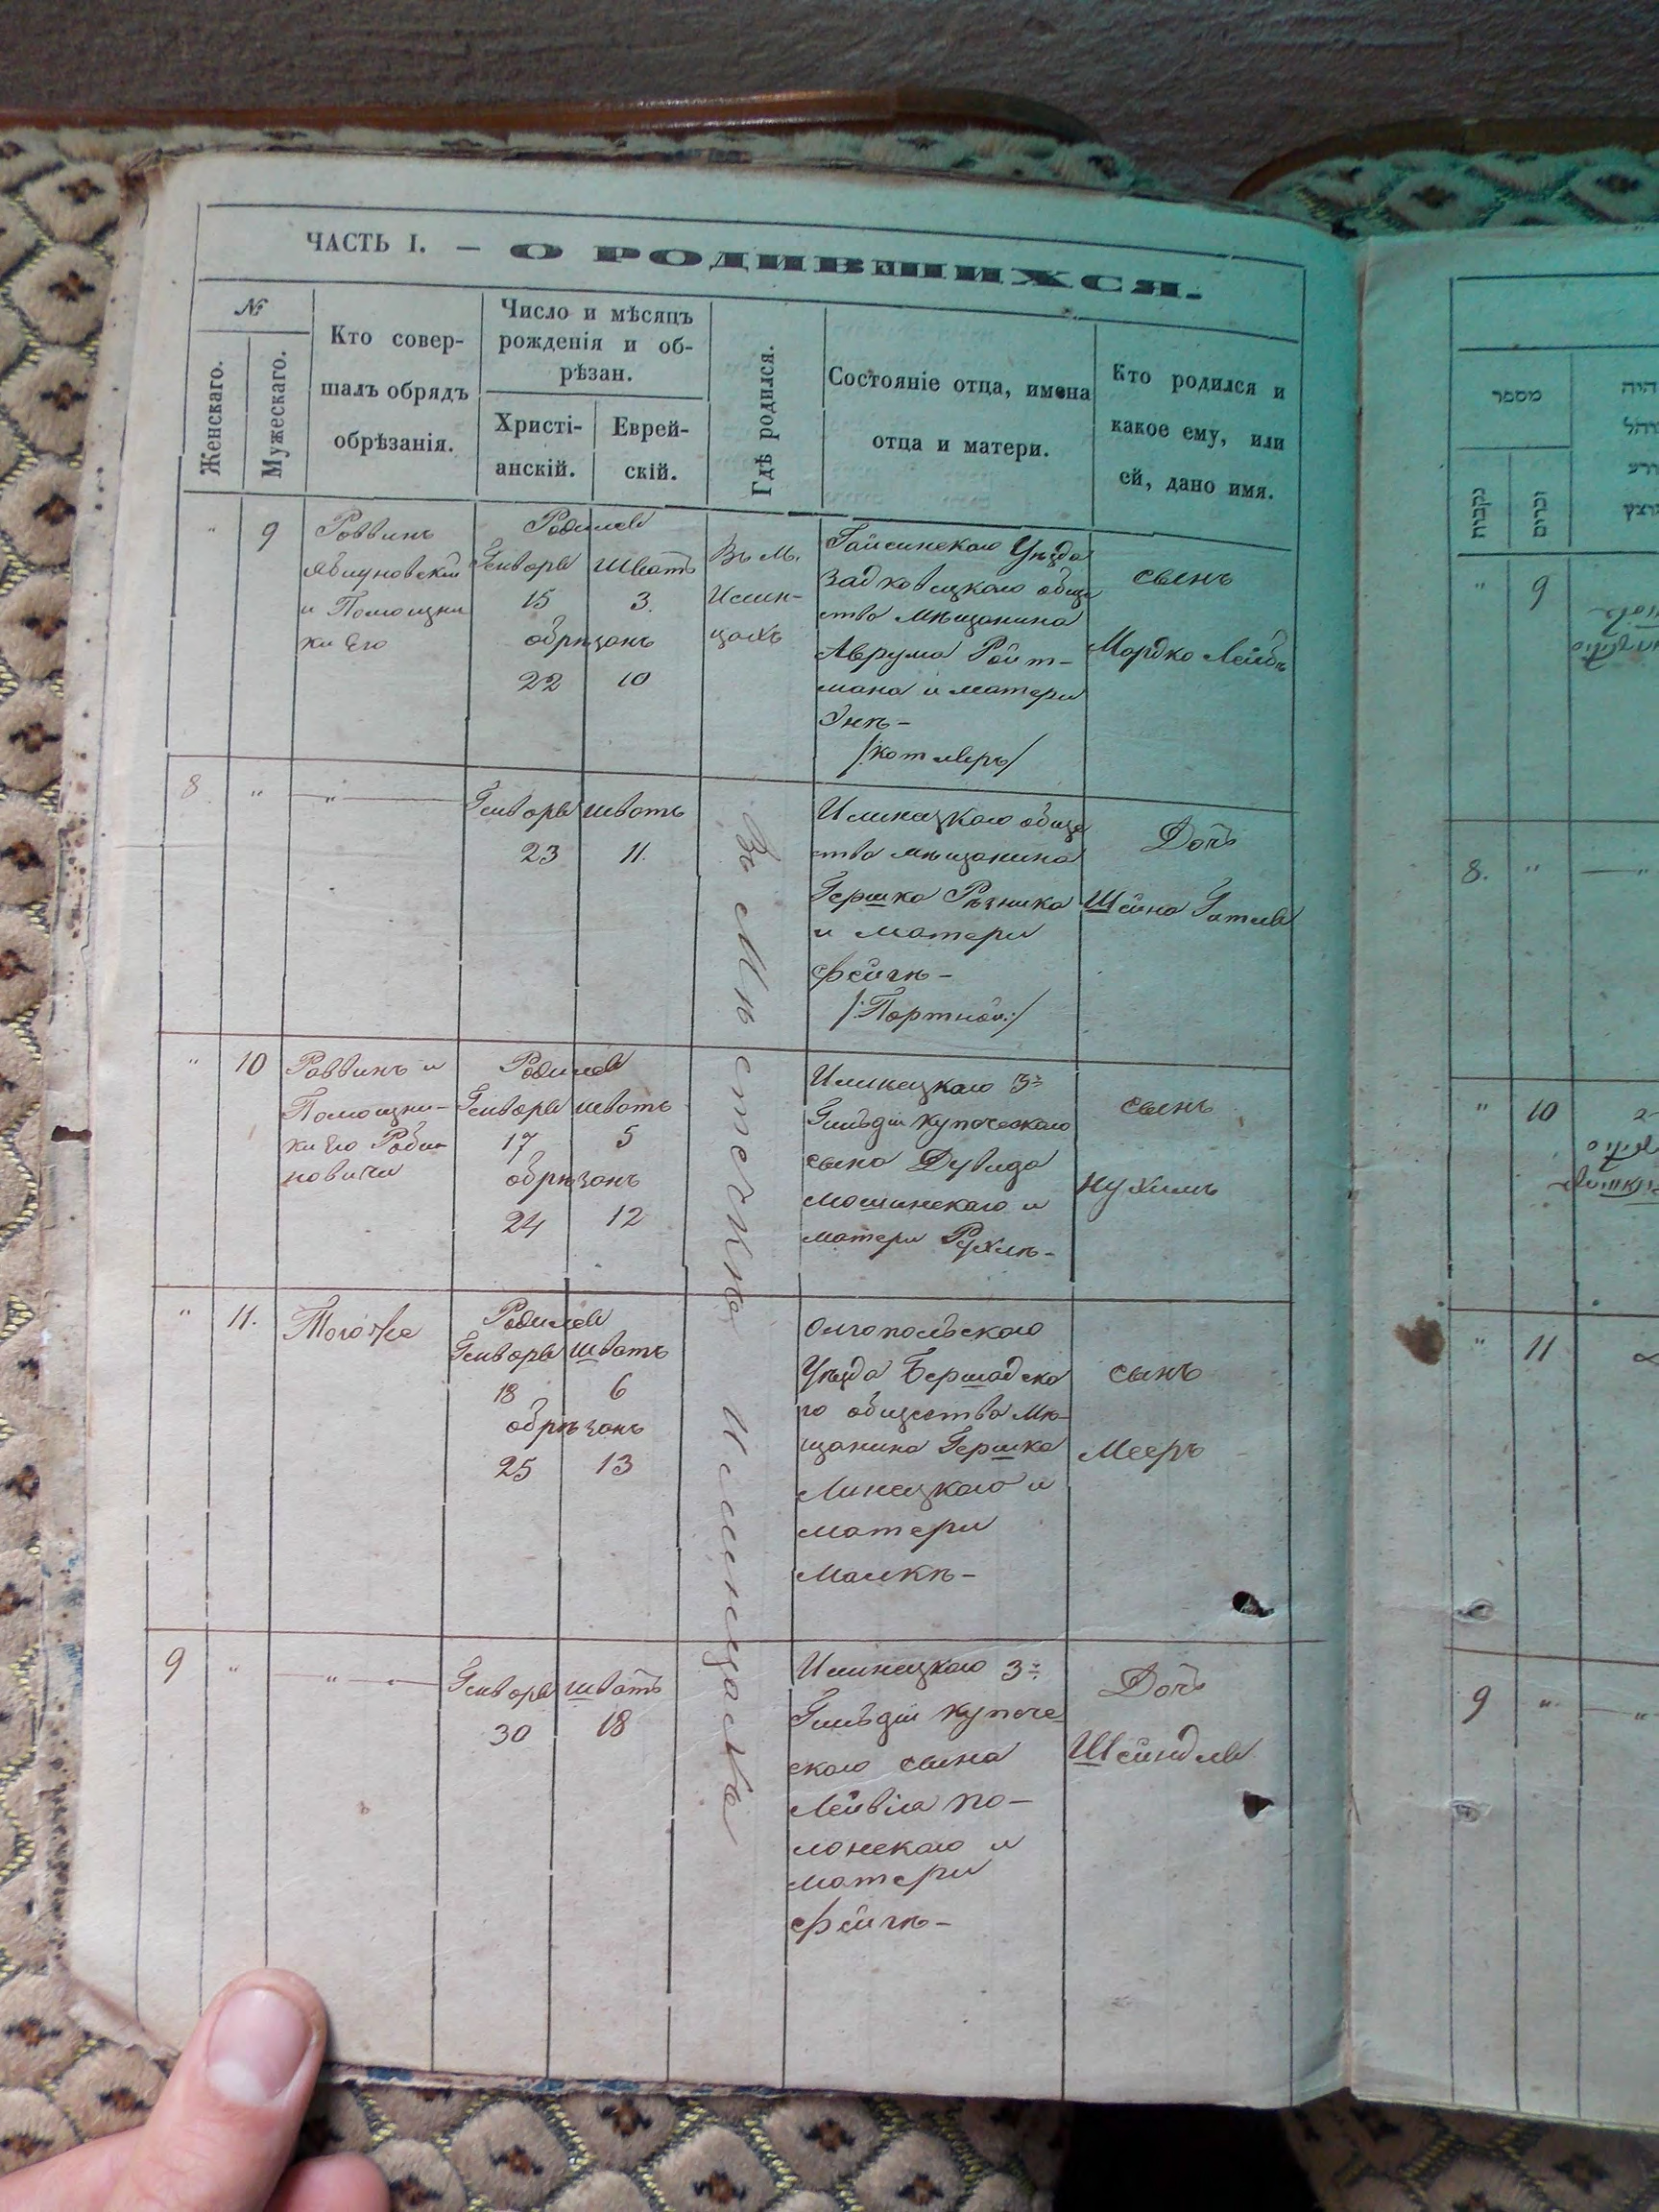 ЧАСТЬ I. — О РОДИВШИХСЯ.
№
Женскаго.
Мужескаго.
Кто совер-
шалъ обрядъ
обрѣзанія.
Число и мѣсяцъ
рожденія и об-
рѣзан.
Христі-
анскій.
Еврей-
скій.
Гдѣ родился.
Состояніе отца, имена
отца и матери.
Кто родился и
какое ему, или
ей, дано имя.
" 9
Раввинъ
и Помощни
ки Его
Родился
Генваря Шватъ
15 3.
обрѣзанъ
22 10
Въ М.
Илин-
цахъ
Гайсинскаго Уѣзда
обще
ства мѣщанина
Аврума Ройт-
мана и матери
Энѣ-
/:котляръ/
сынъ
Мордко Лейбъ
8 " — " —
Генваря шватъ
23 11.
Въ Мѣстечкѣ Илинцахъ
Илинецкаго обще
ства мѣщанина
Гершка Рѣзника
и матери
Фейгѣ-
/:Портной:/
Дочь
Шейна Гитля
" 10
Раввинъ и
Помощни-
ки Его Раби-
новичи
Родился
Генваря шватъ
17 5
обрѣзанъ
24 12
Илинецкаго 3й
Гильдіи купеческаго
сына Дувида
Мошинскаго и
матери Рухлѣ-
сынъ
Нухимъ
" 11.
Тогоже
Родился
Генваря шватъ
18 6
обрѣзанъ
25 13
Олгопольскаго
Уѣзда Бершадска
го общества мѣ-
щанина Гершка
Линецкаго и
матери
Малкѣ-
сынъ
Мееръ
9 " — " —
Генваря шватъ
30 18
Илинецкаго 3й
Гильдіи купече
скаго сына
по-
лонскаго и
матери
Фейгѣ-
Дочь
Шейндля
מספר
נקבות
זכרים
" 9
8. "
" 10
" 11
9 "